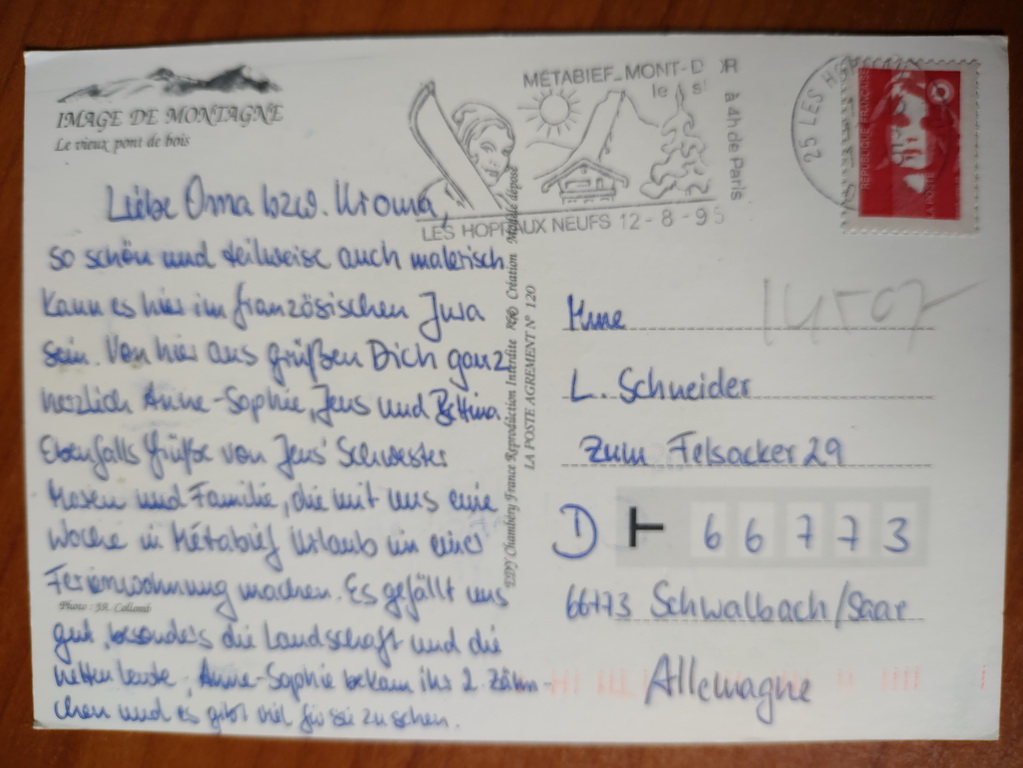 IMAGE DE MONTAGNE
Le vieux pont de bois
MÉTABIEF MONT-D'OR
à 4h de Paris
LES HOPITAUX NEUFS 12-8-95
25 LES H
RÉPUBLIQUE FRANÇAISE
LA POSTE
Liebe Oma bzw. Uroma,
so schön und teilweise auch malerisch
kann es hier im französischen Jura
sein. Von hier aus grüßen Dich ganz
herzlich Anne-Sophie, Jens und Bettina.
Ebenfalls Grüße von Jens' Schwester
und Familie, die mit uns eine
Woche in Métabief Urlaub in einer
Ferienwohnung machen. Es gefällt uns
gut, besonders die Landschaft und die
netten Leute, Anne-Sophie bekam ihr 2. Zähn-
chen und es gibt viel für sie zu sehen.
Photo : J.R. Collomb
EDY Chambéry France Reproduction Interdite Création Modèle déposé
LA POSTE AGREMENT N° 120
14507
Mme
L. Schneider
Zum Felsacker 29
D 66773
66773 Schwalbach/Saar
Allemagne